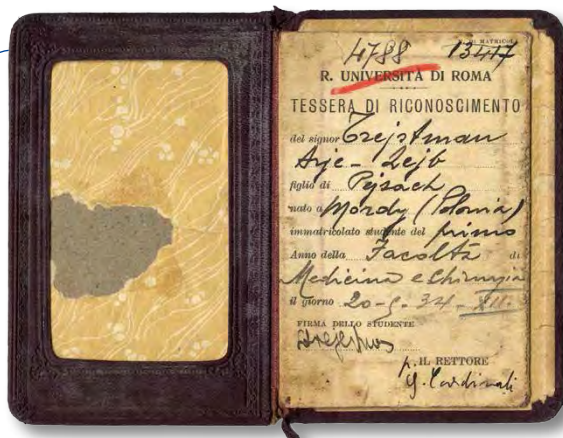 N. DI MATRICOLA
4788 13417
R. UNIVERSITÀ DI ROMA
TESSERA DI RICONOSCIMENTO
del signor Trejstman
Arje - Lejb
figlio di Pejsach
nato a Mordy (Polonia)
immatricolato studente del primo
Anno della Facoltà di
Medicina e Chirurgia
il giorno 20-5-34-XII
FIRMA DELLO STUDENTE
IL RETTORE
G. Cardinali